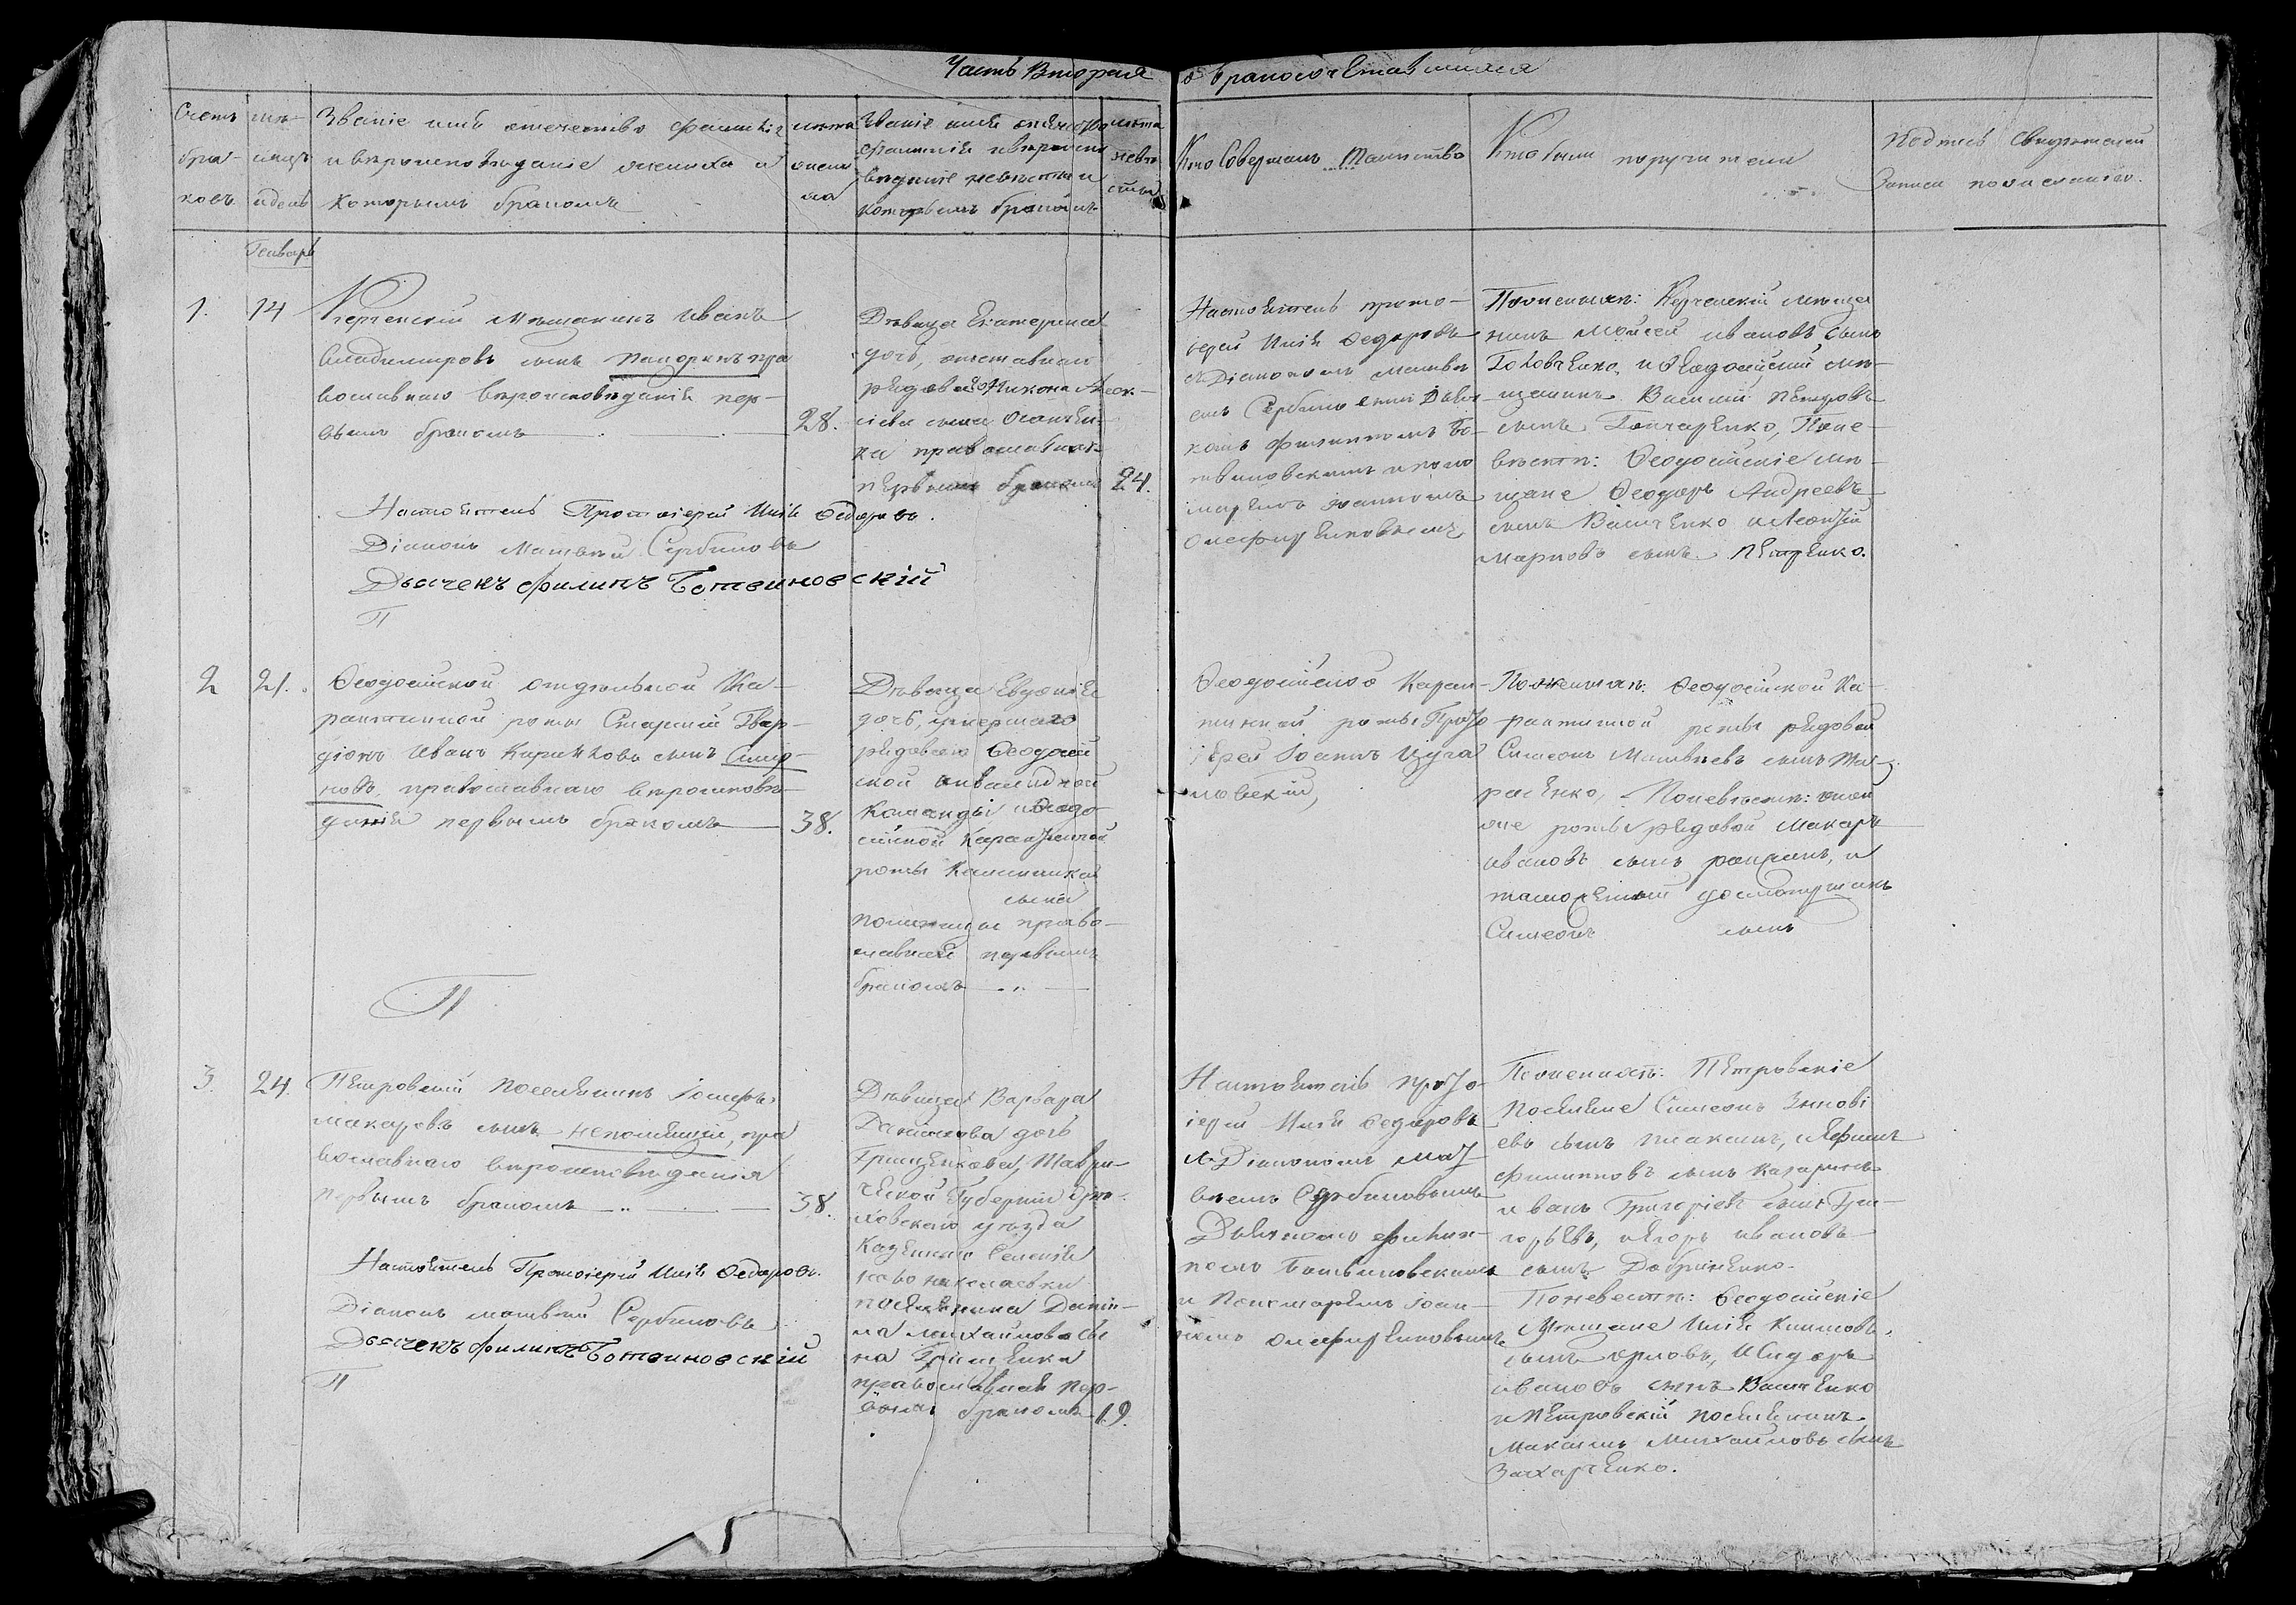 Часть Вторая о бракосочетавшихся
Счетъ
бра-
ковъ
мѣ-
сяцъ
и день
Званіе имя отечество фамилія
и вѣроисповѣданіе жениха и
которымъ бракомъ
лѣта
жени
ха
Званіе имя отечество
фамилія и вѣроиспо
вѣданіе невѣсты и
которымъ бракомъ
лѣта
невѣ
сты
Кто Совершалъ Таинство
Кто были поручители
Подпись свидѣтелей
Записи по желанію.
Генварь
1.
14
Керченскій Мѣщанинъ Иванъ
Владимировъ сынъ пра
вославнаго вѣроисповѣданія пер-
вымъ бракомъ
28.
Дѣвица Екатерина
дочь, отставнаго
рядоваго Никона Алек-
сіева сына
ка православная
первымъ бракомъ
24.
Настоятель прото-
іерей Илія Федоровъ
съ Діакономъ Матвѣ
емъ Сербиновымъ Дьяч-
комъ Филиппомъ Бо-
твиновскимъ и поно
маремъ Іоанномъ
Олефиренковымъ
По женихѣ: Керченскій мѣща
нинъ Мойсей Ивановъ сынъ
Головченко, и Ѳеодосійскій мѣ-
щанинъ Василій Петровъ
сынъ Гончаренко, По не-
вѣстѣ: Ѳеодосійскіе мѣ-
щане Ѳеодоръ Андреевъ
сынъ Васиченко и Леонтій
Марковъ сынъ Петренко.
Настоятель Протоіерей Илія Ѳедоровъ.
Діаконъ Матвѣй Сербиновъ
Дьячекъ Филипъ Ботвиновскій
П
2
21.
Ѳеодосійской отдѣльной Ка-
рантинной роты Старшій Гвар-
діонъ Иванъ Кириловъ сынъ Смир-
новъ, православнаго вѣроисповѣ-
данія первымъ бракомъ
38.
Дѣвица Евдокія
дочь, умершаго
рядоваго Ѳеодосій
ской инвалидной
команды и Ѳеодо
сійской Карантинной
роты
сына
право-
славная первымъ
бракомъ
Ѳеодосійской Каран-
тинной роты Прото
іерей Іоаннъ
По женихѣ: Ѳеодосійской Ка-
рантинной роты рядовой
Симеонъ Матвѣевъ сынъ Та-
расенко, По невѣстѣ: оной
же роты рядовой Макаръ
Ивановъ сынъ и
таможенный досмотрщикъ
Симеонъ сынъ
П
3.
24.
Петровскій поселянинъ Іосифъ
Макаровъ сынъ пра
вославнаго вѣроисповѣданія
первымъ бракомъ
38.
Дѣвица Варвара
Даніилова дочь
Грищенкова, Таври-
ческой Губерніи Дне-
провскаго уѣзда
Казеннаго Селенія
Новониколаевки
поселянина Дані-
ла Михайлова сы
на Грищенка
православная пер-
вымъ бракомъ
19.
Настоятель прото-
іерей Илія Федоровъ
съ Діакономъ Мат-
вѣемъ Сербиновымъ
Дьячкомъ Филип-
помъ Ботвиновскимъ
и Пономаремъ Іоан-
номъ Олефиренковымъ
По женихѣ: Петровскіе
поселяне Симеонъ Зинові
евъ сынъ Плаксинъ, Ефимъ
Филиповъ сынъ Казаринъ
Иванъ Григоріевъ сынъ Гри-
горьевъ, Егоръ Ивановъ
сынъ Добриненко.
По невестѣ: Ѳеодосійскіе
Мѣщане Илія Климовъ
сынъ Орловъ, Исидоръ
Ивановъ сынъ Васиченко
и Петровскій поселянинъ
Максимъ Михайловъ сынъ
Захарченко.
Настоятель Протоіерей Илія Ѳедоровъ.
Діаконъ Матвѣй Сербиновъ
Дьячекъ Филипъ Ботвиновскій
П